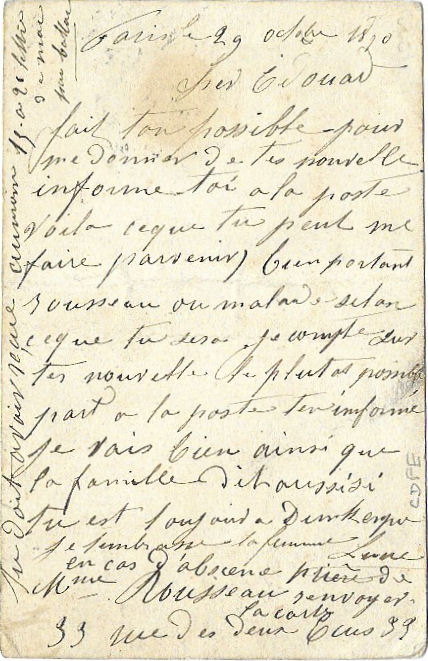 Paris le 29 octobre 1870
Cher Edouard
fait ton possible pour
me donner de tes nouvelle
informe toi a la poste
voila ceque tu peut me
faire parvenir) bien portant
Rousseau ou malade selon
ceque tu sera je compte sur
tes nouvelle le plutot possible
part a la poste ten informé
je vais bien ainsi que
la famille dit aussi si
tu est toujour a Dunkerque
je tembrasse ta femme
en cas d'absence prière de
Mme Rousseau renvoyer
la carte
33 rue des deux Ecus 33
Tu doit avoir reçue au moin 15 a 20 lettre
de moi
par ballon
CDFE